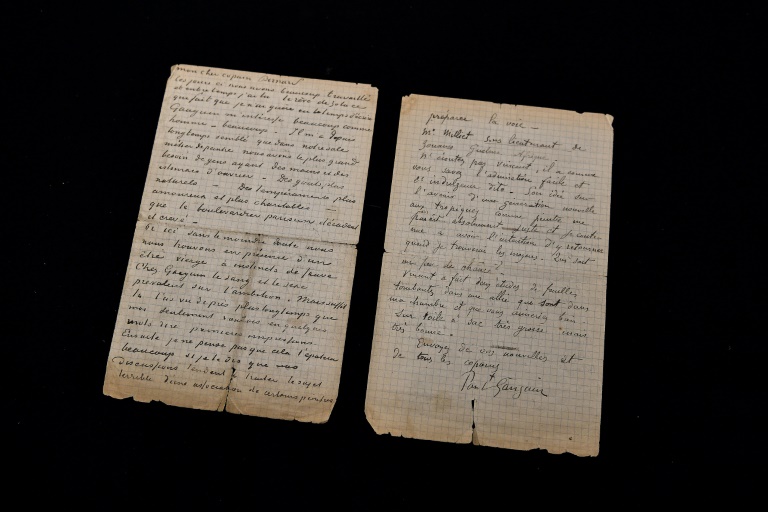 mon cher copain Bernard
Ces jours ci nous avons beaucoup travaillé
et entretemps j'ai lu le rêve de Zola ce
qui fait que je n'ai guère eu le temps d'écrire
Gauguin m'intéresse beaucoup comme
homme – beaucoup – Il m'a depuis
longtemps semblé que dans notre sale
métier de peintre nous avons le plus grand
besoin de gens ayant des mains et des
estomacs d'ouvrier – Des goûts plus
naturels – Des tempéraments plus
amoureux et plus charitables
que le boulevardier parisien décadent
et crevé –
Or ici sans le moindre doute nous
nous trouvons en présence d'un
être vierge à instincts de sauvage
Chez Gauguin le sang et le sexe
prévalent sur l'ambition. Mais suffit
tu l'as vu de près plus longtemps que
moi seulement voulais en quelques
mots dire premières impressions.
Ensuite je ne pense pas que cela t'épatera
beaucoup si je te dis que nos
Discussions tendent à traiter le sujet
terrible d'une association de certains peintres
préparer la voie –
Mr Milliet sous lieutenant de
zouaves Guelma Afrique.
N'écoutez pas Vincent, il a comme
vous savez l'admiration facile et
dito l'indulgence – Son idée sur
l'avenir d'une génération nouvelle
aux tropiques comme peintre me
paraît absolument juste et je conti-
nue à avoir l'intention d'y retourner
quand je trouverai les moyens. Qui sait
un peu de chance?
Vincent a fait deux études de feuilles
tombantes dans une allée qui sont dans
ma chambre et que vous aimeriez bien
Sur toile à sac très grosse mais
très bonne –
Envoyez de vos nouvelles et
de tous les copains
Paul Gauguin